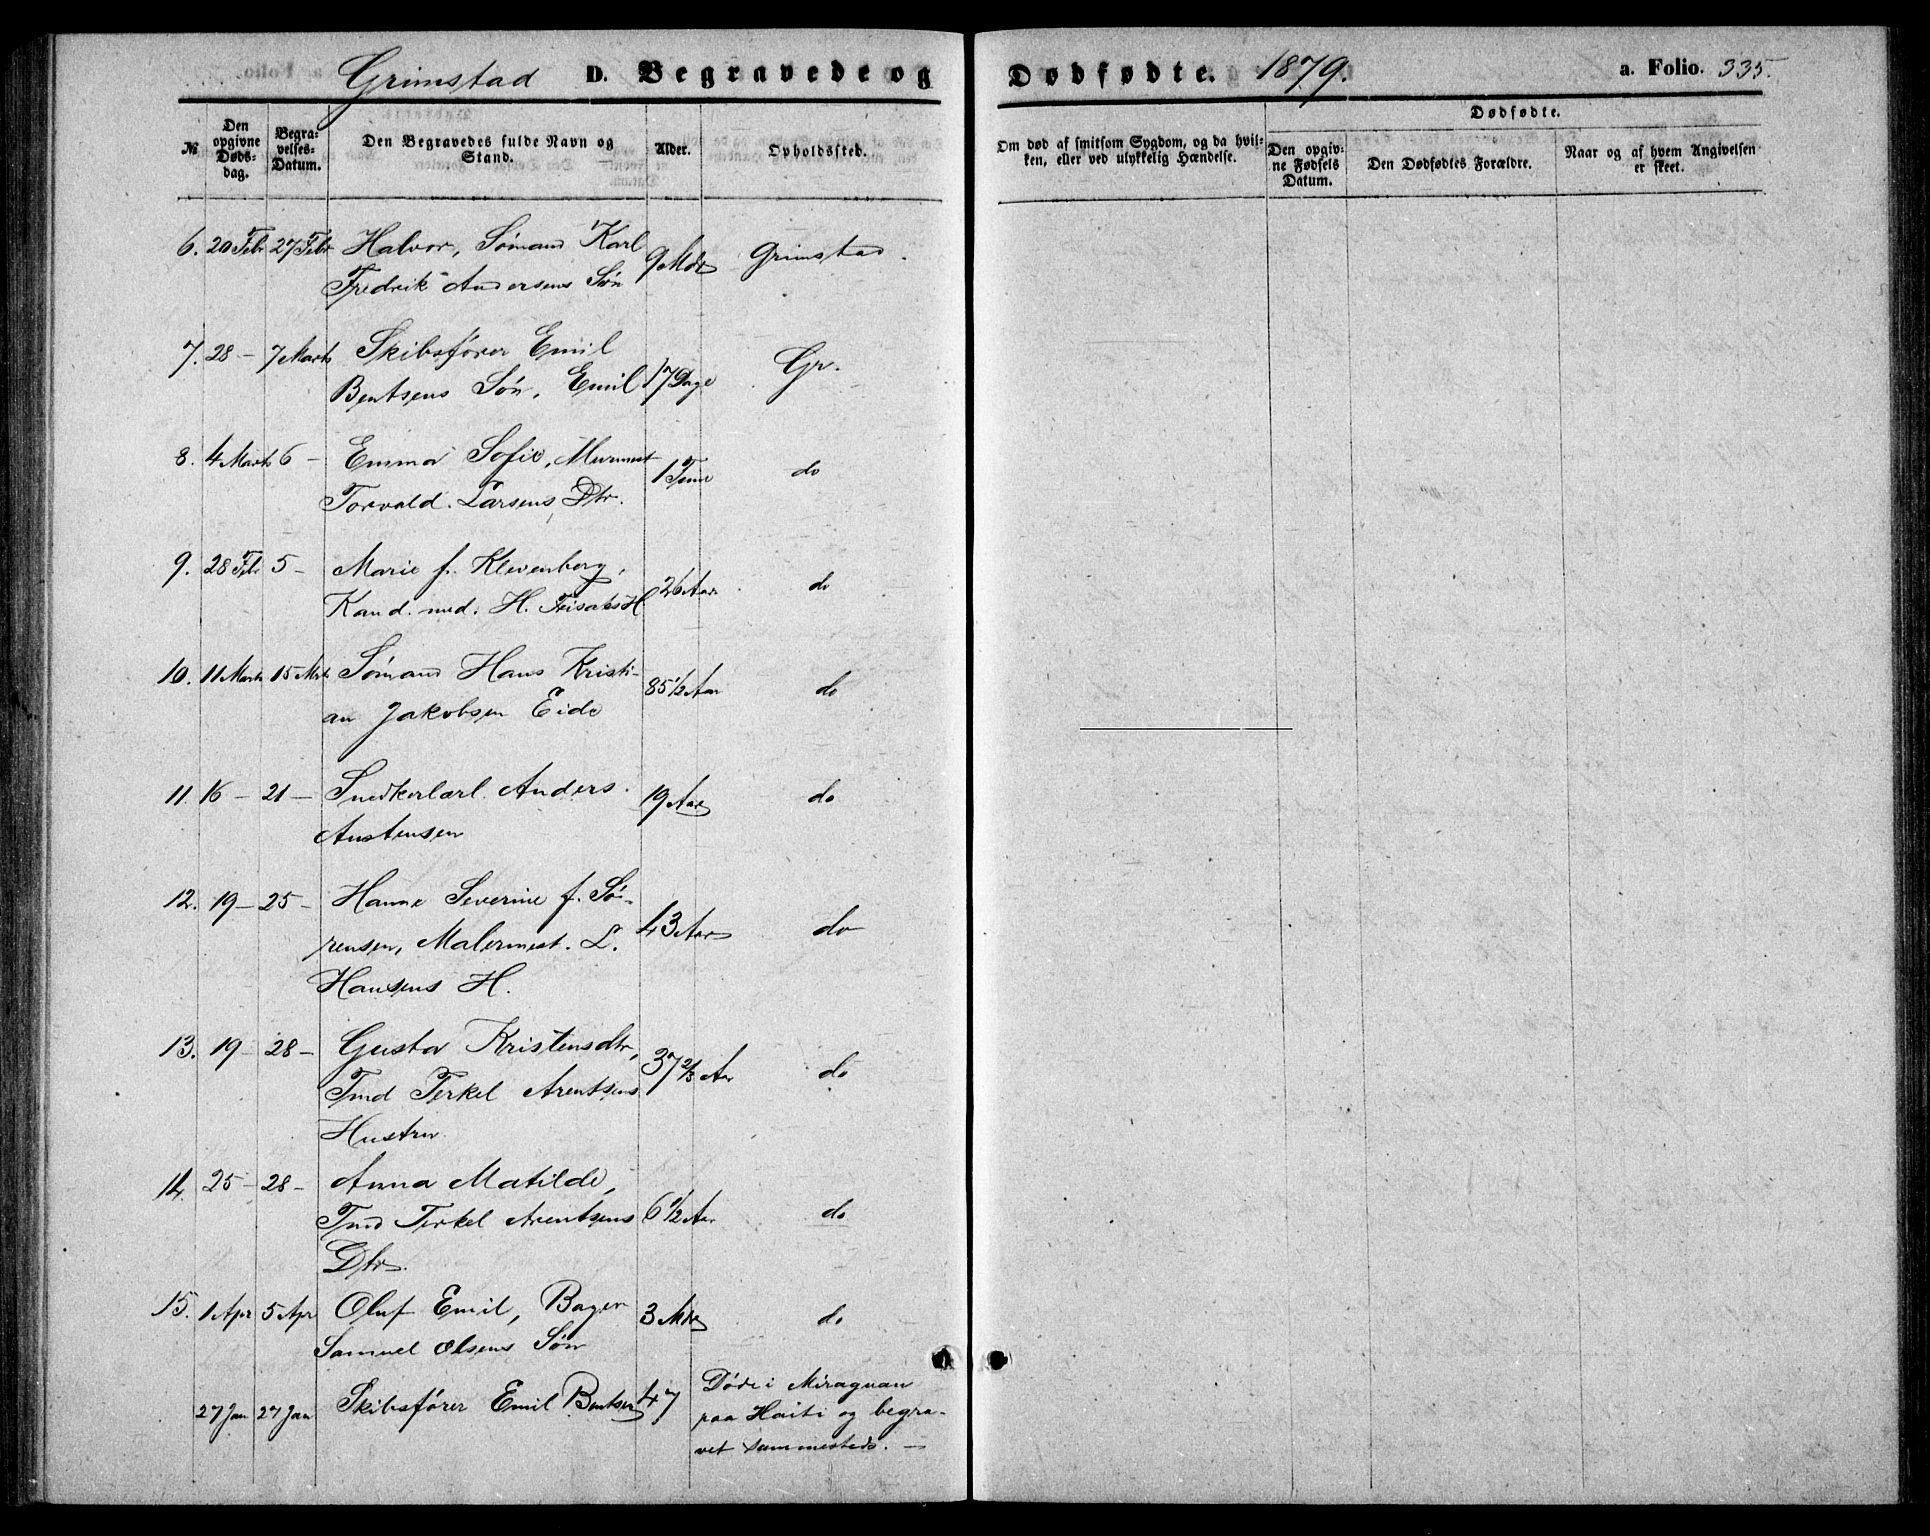 Grimstad D. Begravede og
№
Den opgivne Døds-dag.
Begra-velses-Datum.
Den Begravedes fulde Navn og Stand.
Alder.
Opholdssted.
6. 20 Febr 27 Febr Halvor, Sømand Karl 9 Mdr Grimstad.
Fredrik Andersens Søn
7. 28 - 7 Marts Skibsfører Emil 17 Dage Gr.
Bentsens Søn, Emil
8. 4 Marts 6 - Emma Sofie, Murmest 1 Time do
Torvald Larsens Dtr.
9. 28 Feb 5 - Marie f. Klevenberg, 26 Aar do
Kand. med. H. H
10. 11 Marts 15 Mrts Sømand Hans Kristi- 85 1/2 Aar do
an Jakobsen Eide
11. 16 - 21 - Snedkerlærl. Anders 19 Aar do
Austensen
12. 19 - 25 - Hanne Severine f. Sø- 43 Aar do
rensen, Malermest. L.
Hansens H.
13. 19 - 28 - Gusta Kristensdtr, 37 2/3 Aar do
Tmd Terkel Arentsens
Hustru
14. 25 - 28 - Anna Matilde, 6 1/2 Aar do
Tmd Terkel Arentsens
Dtr.
15. 1 Apr 5 Apr Oluf Emil, Bager 3 Mdr do
Samuel Olsens Søn
27 Jan 27 Jan Skibsfører Emil Bentsen 47 Døde i Miraguan
paa Haiti og begra-
vet sammesteds. -
Dødfødte. 1879. a. Folio. 335.
Om død af smitsom Sygdom, og da hvil-
ken, eller ved ulykkelig Hændelse.
Dødfødte.
Den opgiv-
ne Fødsels
Datum.
Den Dødfødtes Forældre.
Naar og af hvem Angivelsen
er skeet.